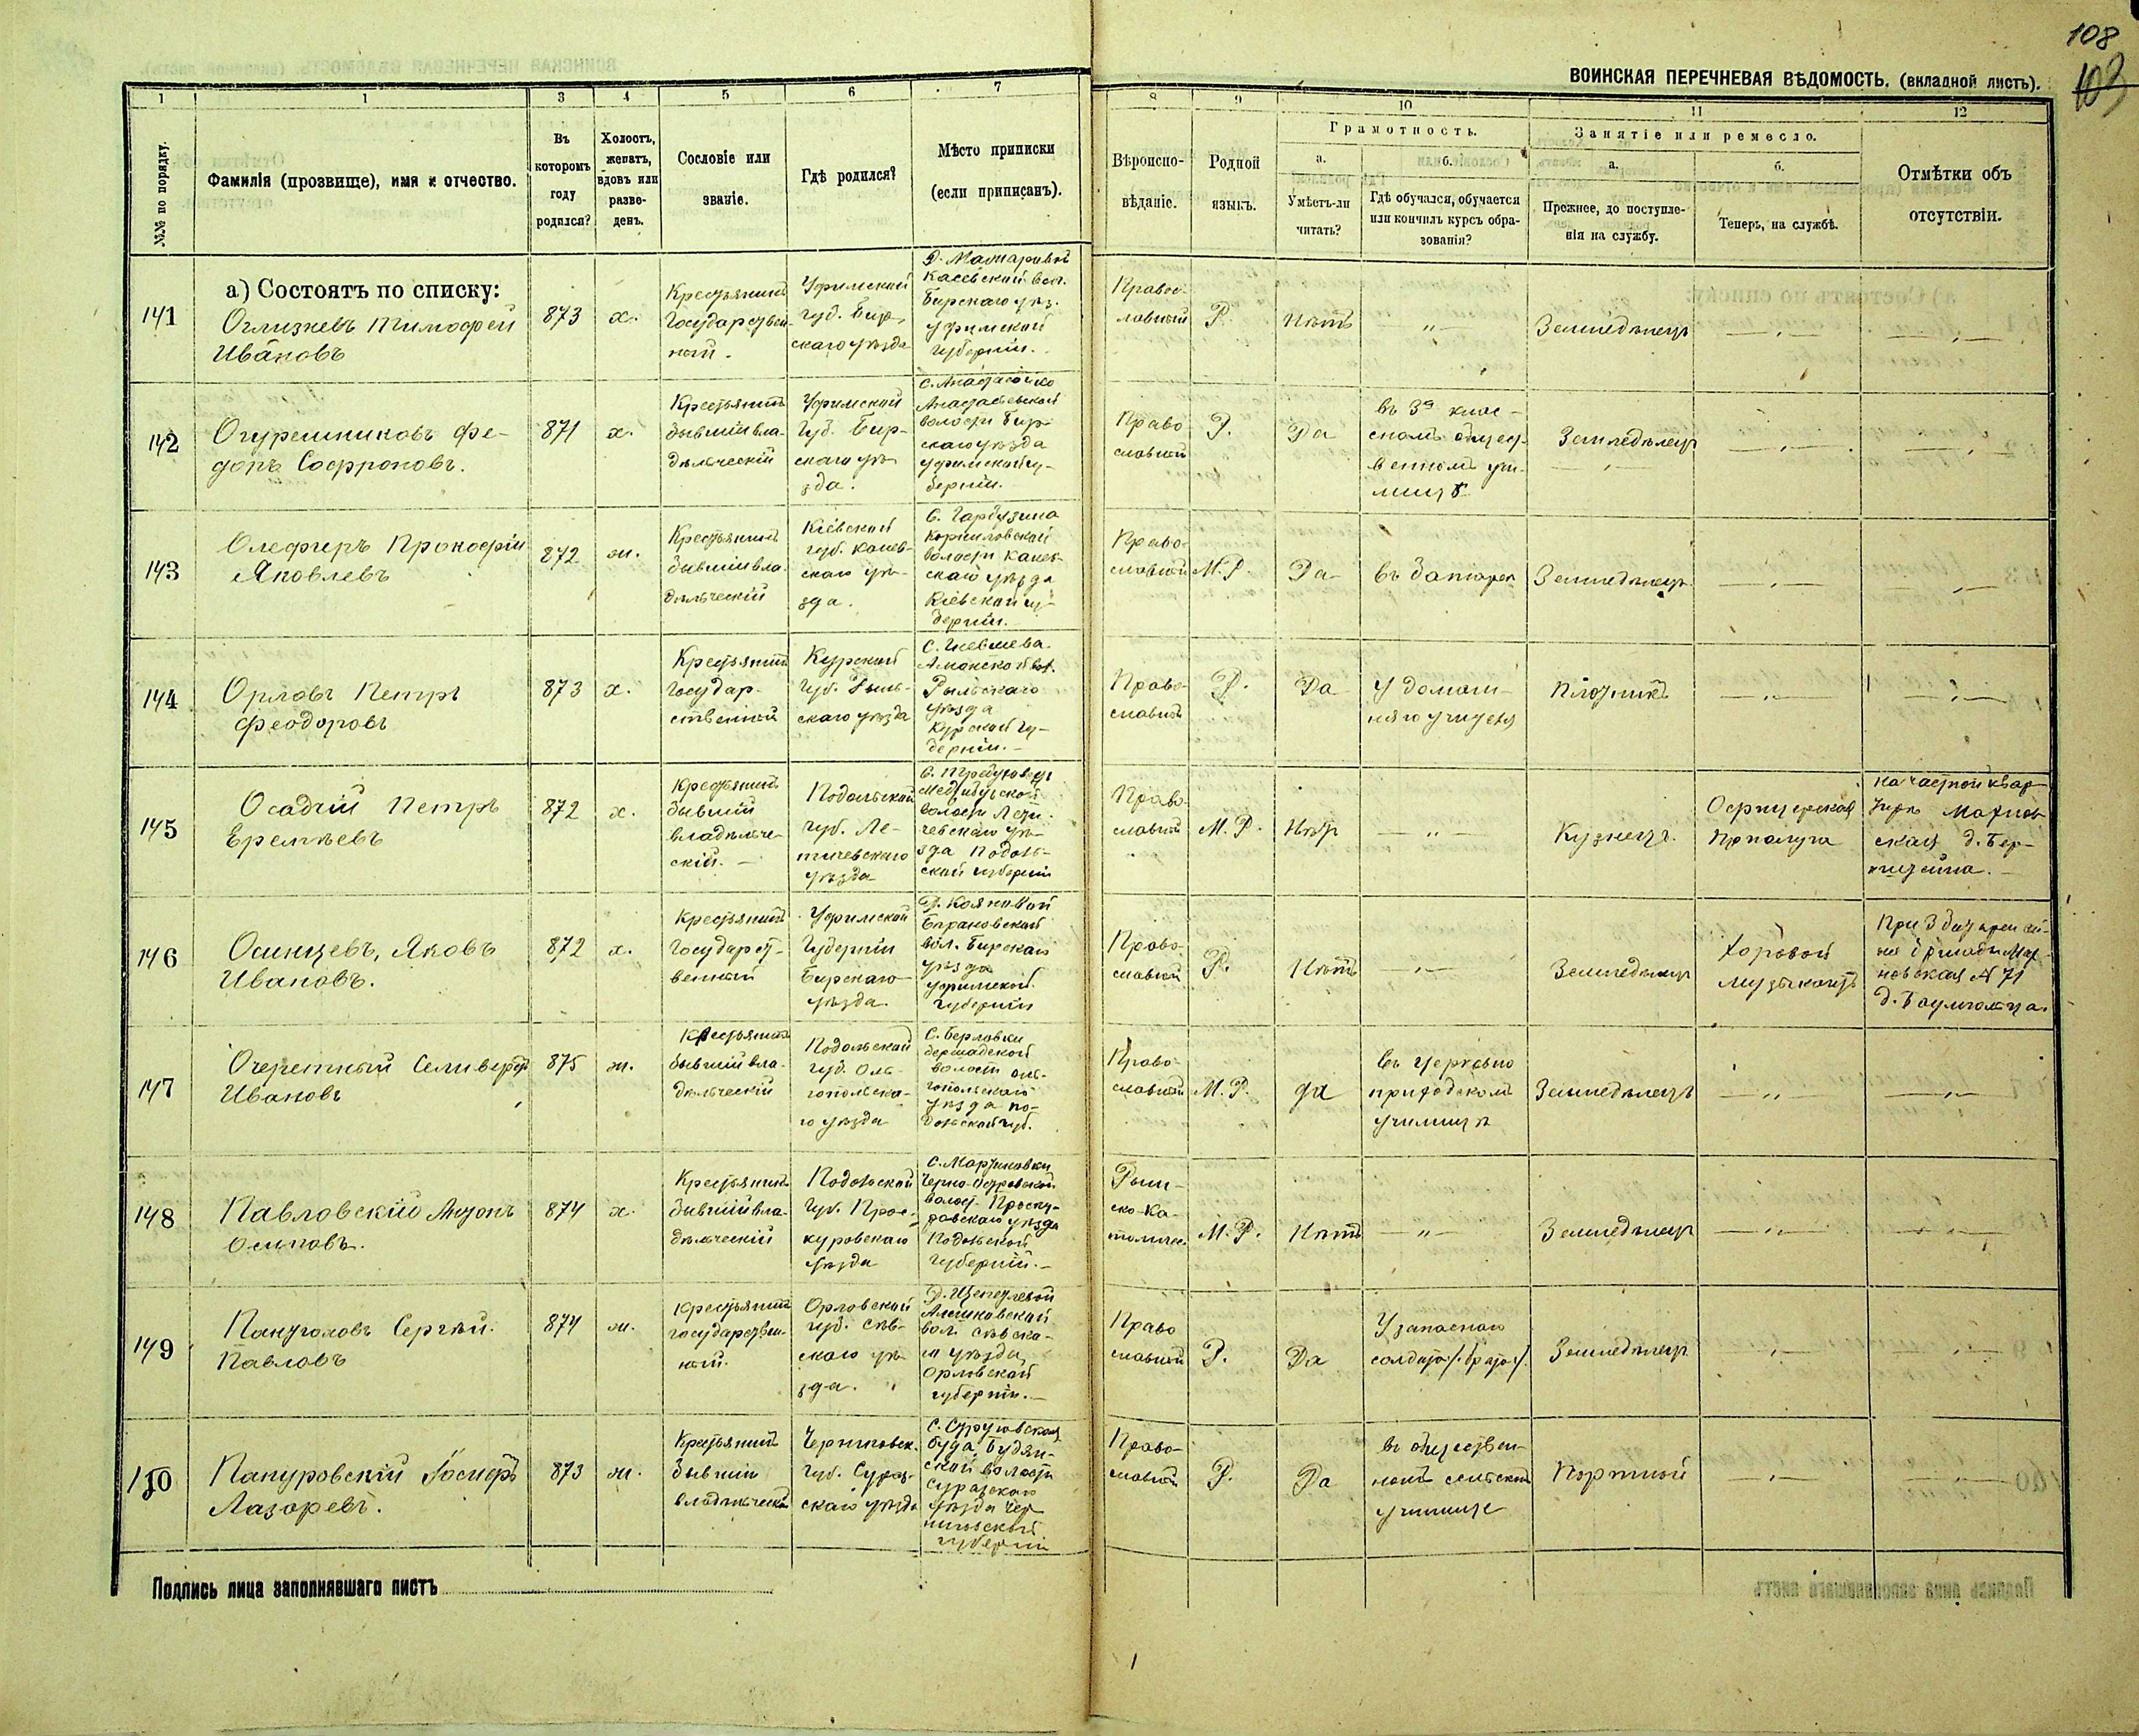 108
103
ВОИНСКАЯ ПЕРЕЧНЕВАЯ ВѢДОМОСТЬ. (вкладной листъ).
1 1 3 4 5 6 7 8 9 10 11 12
№№ по порядку.
Фамилія (прозвище), имя и отчество.
Въ которомъ году родился?
Холостъ, женатъ, вдовъ или разве-денъ.
Сословіе или званіе.
Гдѣ родился?
Мѣсто приписки (если приписанъ).
Вѣроиспо-вѣданіе.
Родной языкъ.
Грамотность.
а. Умѣетъ-ли читать?
б. Гдѣ обучался, обучается или кончилъ курсъ обра-зованія?
Занятіе или ремесло.
а. Прежнее, до поступле-нія на службу.
б. Теперь, на службѣ.
Отмѣтки объ отсутствіи.
а) Состоятъ по списку:
141
Тимофей
Ивановъ
873
х.
Крестьянинъ
Государствен-
ный.
Уфимской
губ. Бир-
скаго уѣзда
Касевской вол.
Бирскаго уѣз.
Уфимской
губерніи.
Правос-
лавный
Р.
Нѣтъ
Земледѣлецъ
142
Огурешниковъ Фе-
донъ Софроновъ.
871
х.
Крестьянинъ
бывшій вла-
дѣльческій
Уфимской
губ. Бир-
скаго уѣ-
зда.
волости Бир-
скаго уѣзда
Уфимской гу-
берніи.
Право
славный
Р.
Да
въ 3а клас-
сномъ общест-
венномъ учи-
лищѣ
Земледѣлецъ
143
Олефиръ Прокофій
Яковлевъ
872
ж.
Крестьянинъ
бывшій вла-
дѣльческій
Кіевской
губ. Канев-
скаго уѣ-
зда.
волости Канев-
скаго уѣзда
Кіевской гу-
берніи.
Право-
славный
М. Р.
Да
въ батареи
Земледѣлецъ
144
Орловъ Петръ
Феодоровъ
873
х.
Крестьянинъ
Государ-
ственный
Курской
губ. Рыль-
скаго уѣзда
Амонской вол.
Рыльскаго
уѣзда
Курской гу-
берніи.
Право-
славный
Р.
Да
У домаш-
няго учителя
Плотникъ
145
Осадчій Петръ
Еремѣевъ
872
х.
Крестьянинъ
бывшій
владѣльче-
скій.
Подольской
губ. Ле-
тичевскаго
уѣзда
волости Лети-
чевскаго уѣ-
зда Подоль-
ской губерніи
Право-
славный
М. Р.
Нѣтъ
Кузнецъ.
Офицерская
прислуга
на частной квар-
тирѣ
146
Осинцевъ, Яковъ
Ивановъ.
872
х.
Крестьянинъ
Государст-
венный
Уфимской
Губерніи
Бирскаго
уѣзда.
вол. Бирскаго
уѣзда
Уфимской
губерніи
Право-
славной
Р.
Нѣтъ
Земледѣлецъ
Хоровой
музыкантъ
№ 71
147
Очеретный Селиверстъ
Ивановъ
875
ж.
Крестьянинъ
бывшій вла-
дѣльческій
Подольской
губ. Оль-
гопольска-
го уѣзда
С. Берловки
бершадской
волости Оль-
гопольскаго
уѣзда По-
дольской губ.
Право-
славный
М. Р.
да
въ церковно
приходскомъ
училищѣ
Земледѣлецъ
148
Павловскій Антонъ
Осиповъ.
874
х.
Крестьянинъ
бывшій вла-
дѣльческій
Подольской
губ. Прос-
куровскаго
уѣзда
С. Мартиновки
Черно-Островской
волост. Проску-
ровскаго уѣзда
Подольской
губерніи.
Рим-
ско-ка-
толичес.
М. Р.
Нѣтъ
Земледѣлецъ
149
Сергѣй
Павловъ
874
ж.
Крестьянинъ
государствен-
ный.
Орловской
губ. Сѣв-
скаго уѣ-
зда.
вол. Сѣвска-
го уѣзда
Орловской
губерніи.
Право
славной
Р.
Да
У запаснаго
солдата /: брата :/.
Земледѣлецъ
150
Пануровскій Іосифъ
Лазаревъ.
873
ж.
Крестьянинъ
бывшій
владѣльческій
Черниговск.
губ. Сураж-
скаго уѣзда
Суражскаго
уѣзда Чер-
ниговской
губерніи
Право-
славной
Р.
Да
въ обществен-
номъ сельскомъ
училищѣ
Портной
Подпись лица заполнявшаго листъ